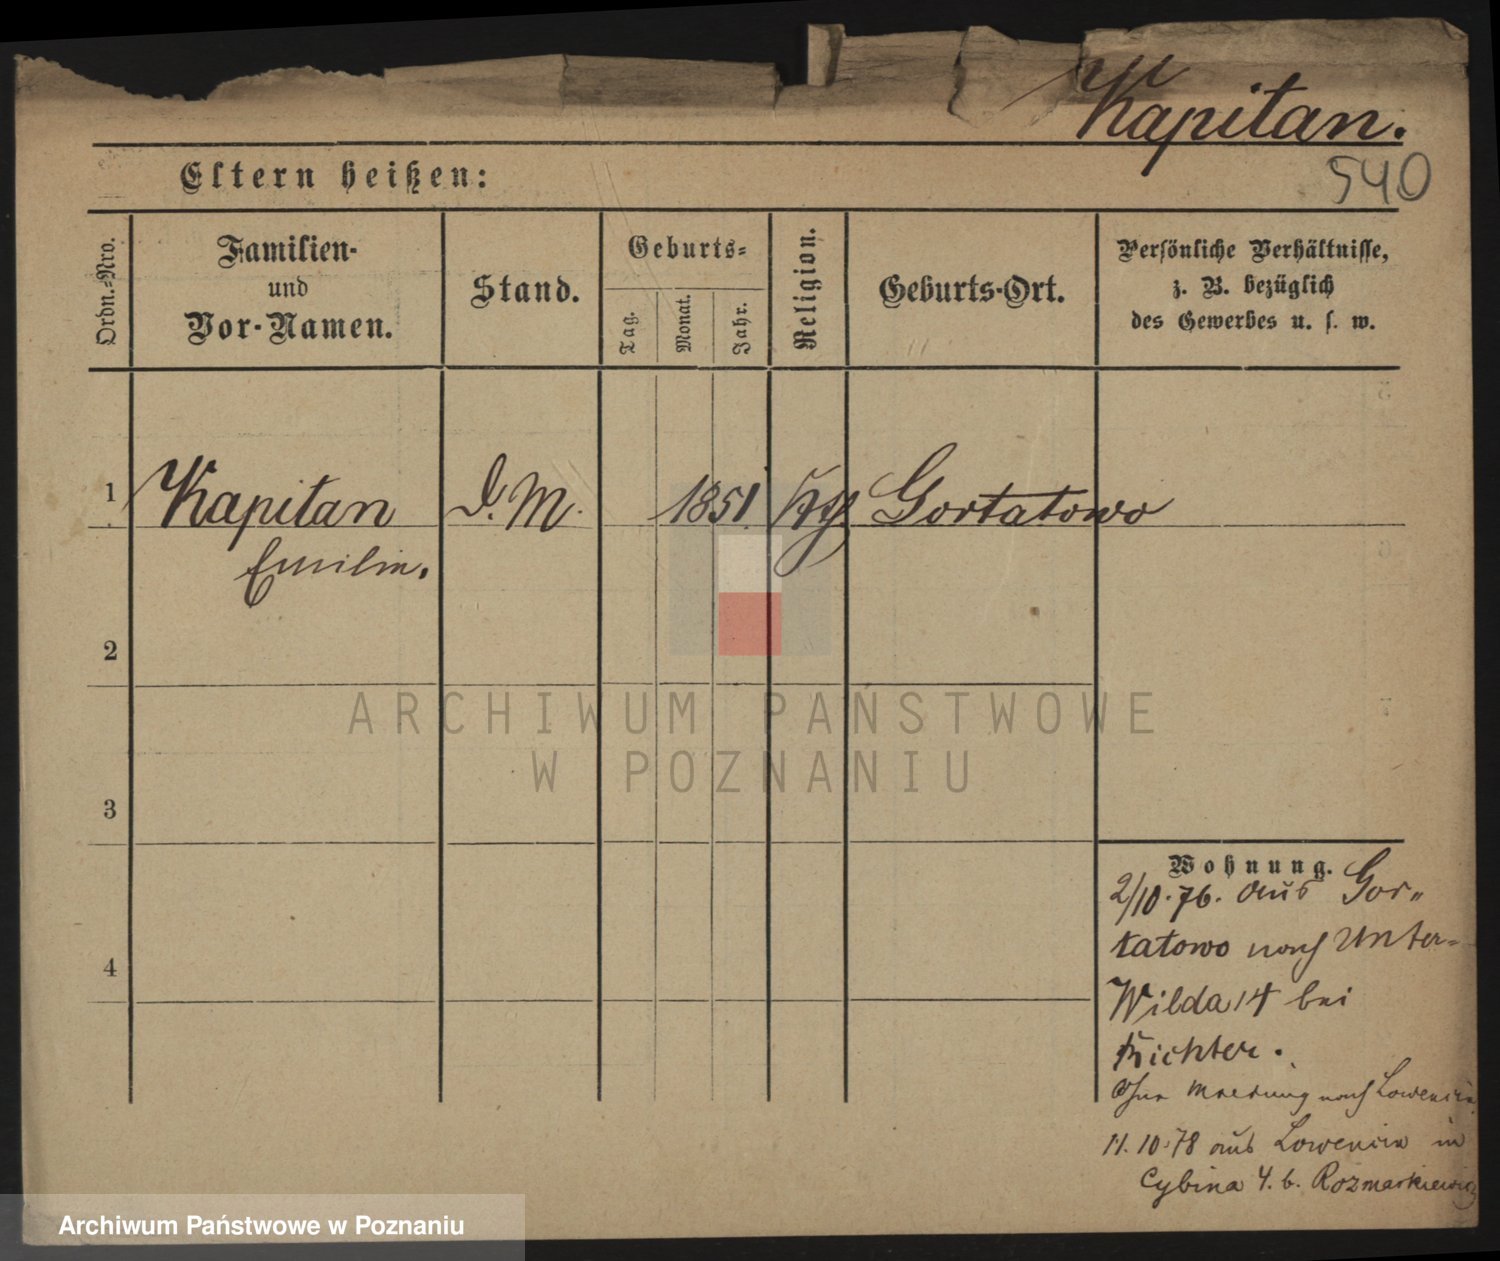 Kapitan.
540
Eltern heißen:
Ordn.-Nro.
Familien-
und
Vor-Namen.
Stand.
Geburts-
Tag.
Monat.
Jahr.
Religion.
Geburts-Ort.
Persönliche Verhältnisse,
z. B. bezüglich
des Gewerbes u. s. w.
1 Kapitan D. M. 1851 Gortatowo
Emilie.
2
ARCHIWUM PAŃSTWOWE
W POZNANIU
3
Wohnung.
2/10.76. aus Gor-
tatowo nach Unter-
4
Wilda 14 bei
Richter.
Ohne Meldung nach Lowencin
11.10.78 aus Lowencin in
Cybina 4. b. Rozmarkiewicz
Archiwum Państwowe w Poznaniu